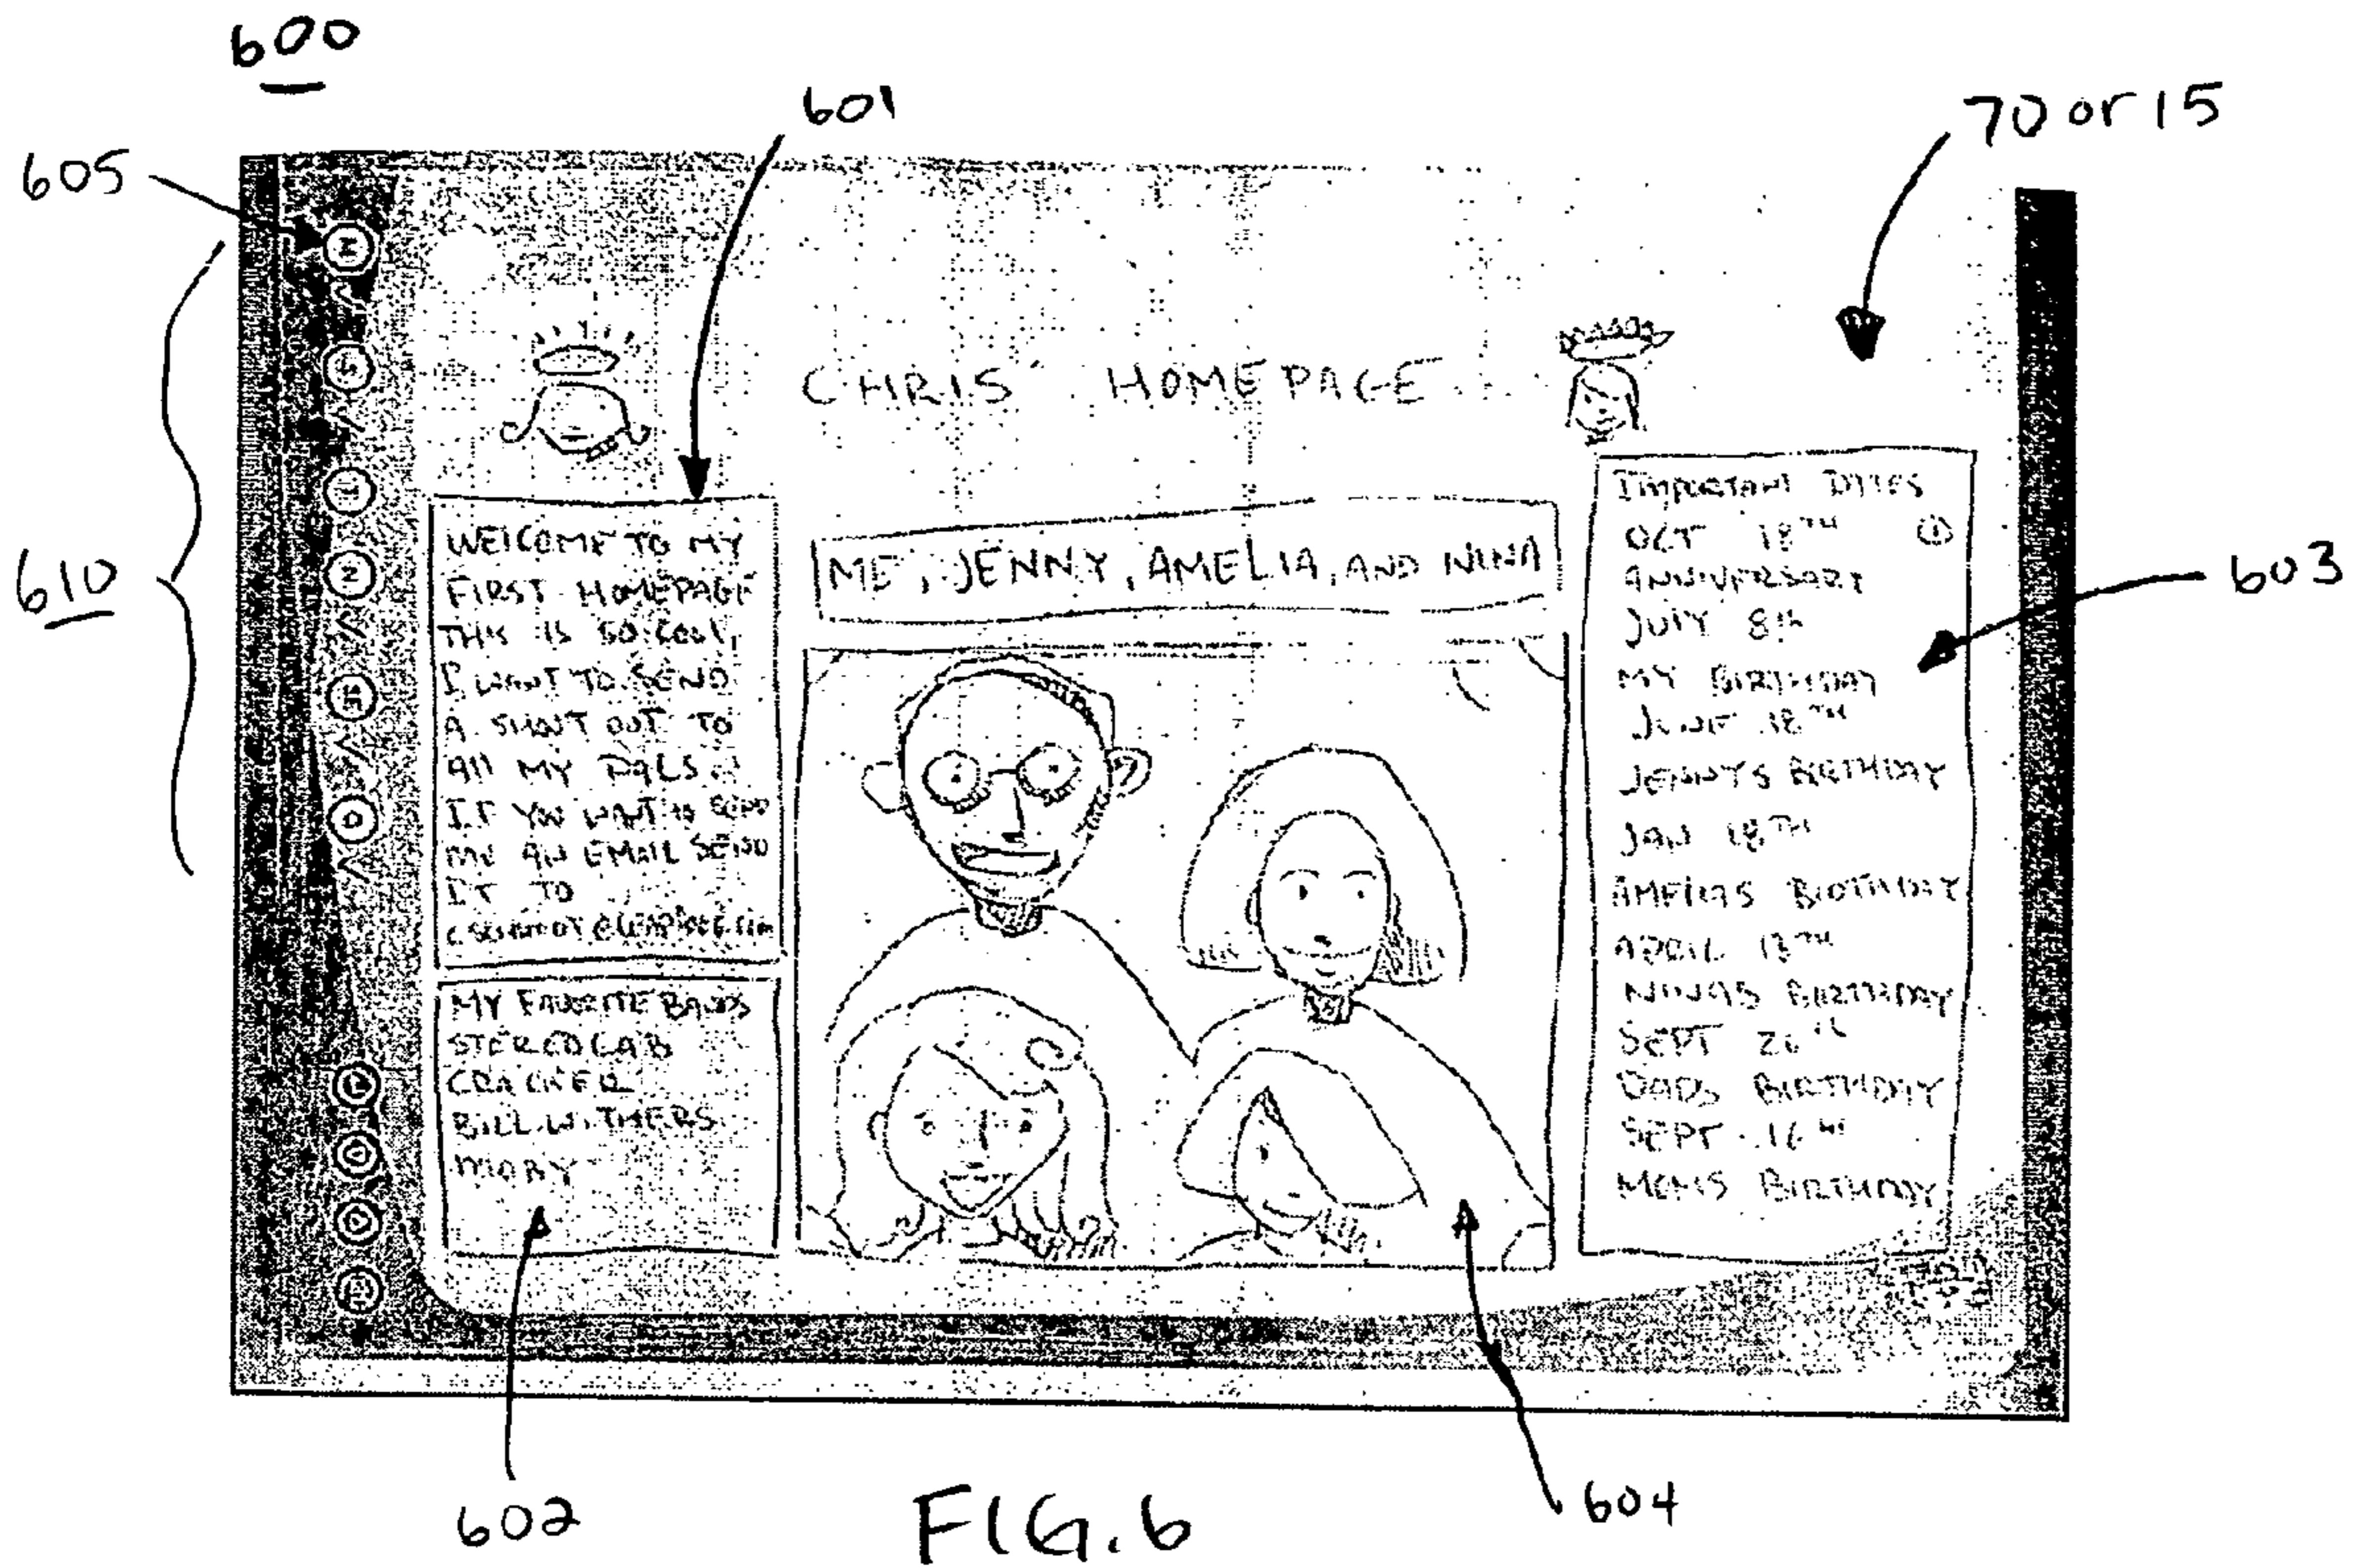 600
601
70 or 15
605
610
603
CHRIS' HOMEPAGE
WELCOME TO MY
FIRST HOMEPAGE
THIS IS SO COOL,
I WANT TO SEND
A SHOUT OUT TO
All MY PALS
IF YOU WANT TO SEND
ME AN EMAIL SEND
IT TO
MY FAVORITE BANDS
STEREOLAB
CRACKER
BILL WITHERS
MOBY
ME, JENNY, AMELIA, AND NINA
IMPORTANT DATES
OCT 18TH
ANNIVERSARY
JULY 8th
MY BIRTHDAY
JUNE 18TH
JENNYS BIRTHDAY
JAN 18TH
AMELIAS BIRTHDAY
APRIL 13TH
NINAS BIRTHDAY
SEPT
DADS BIRTHDAY
SEPT 16TH
MOMS BIRTHDAY
602
604
FIG. 6